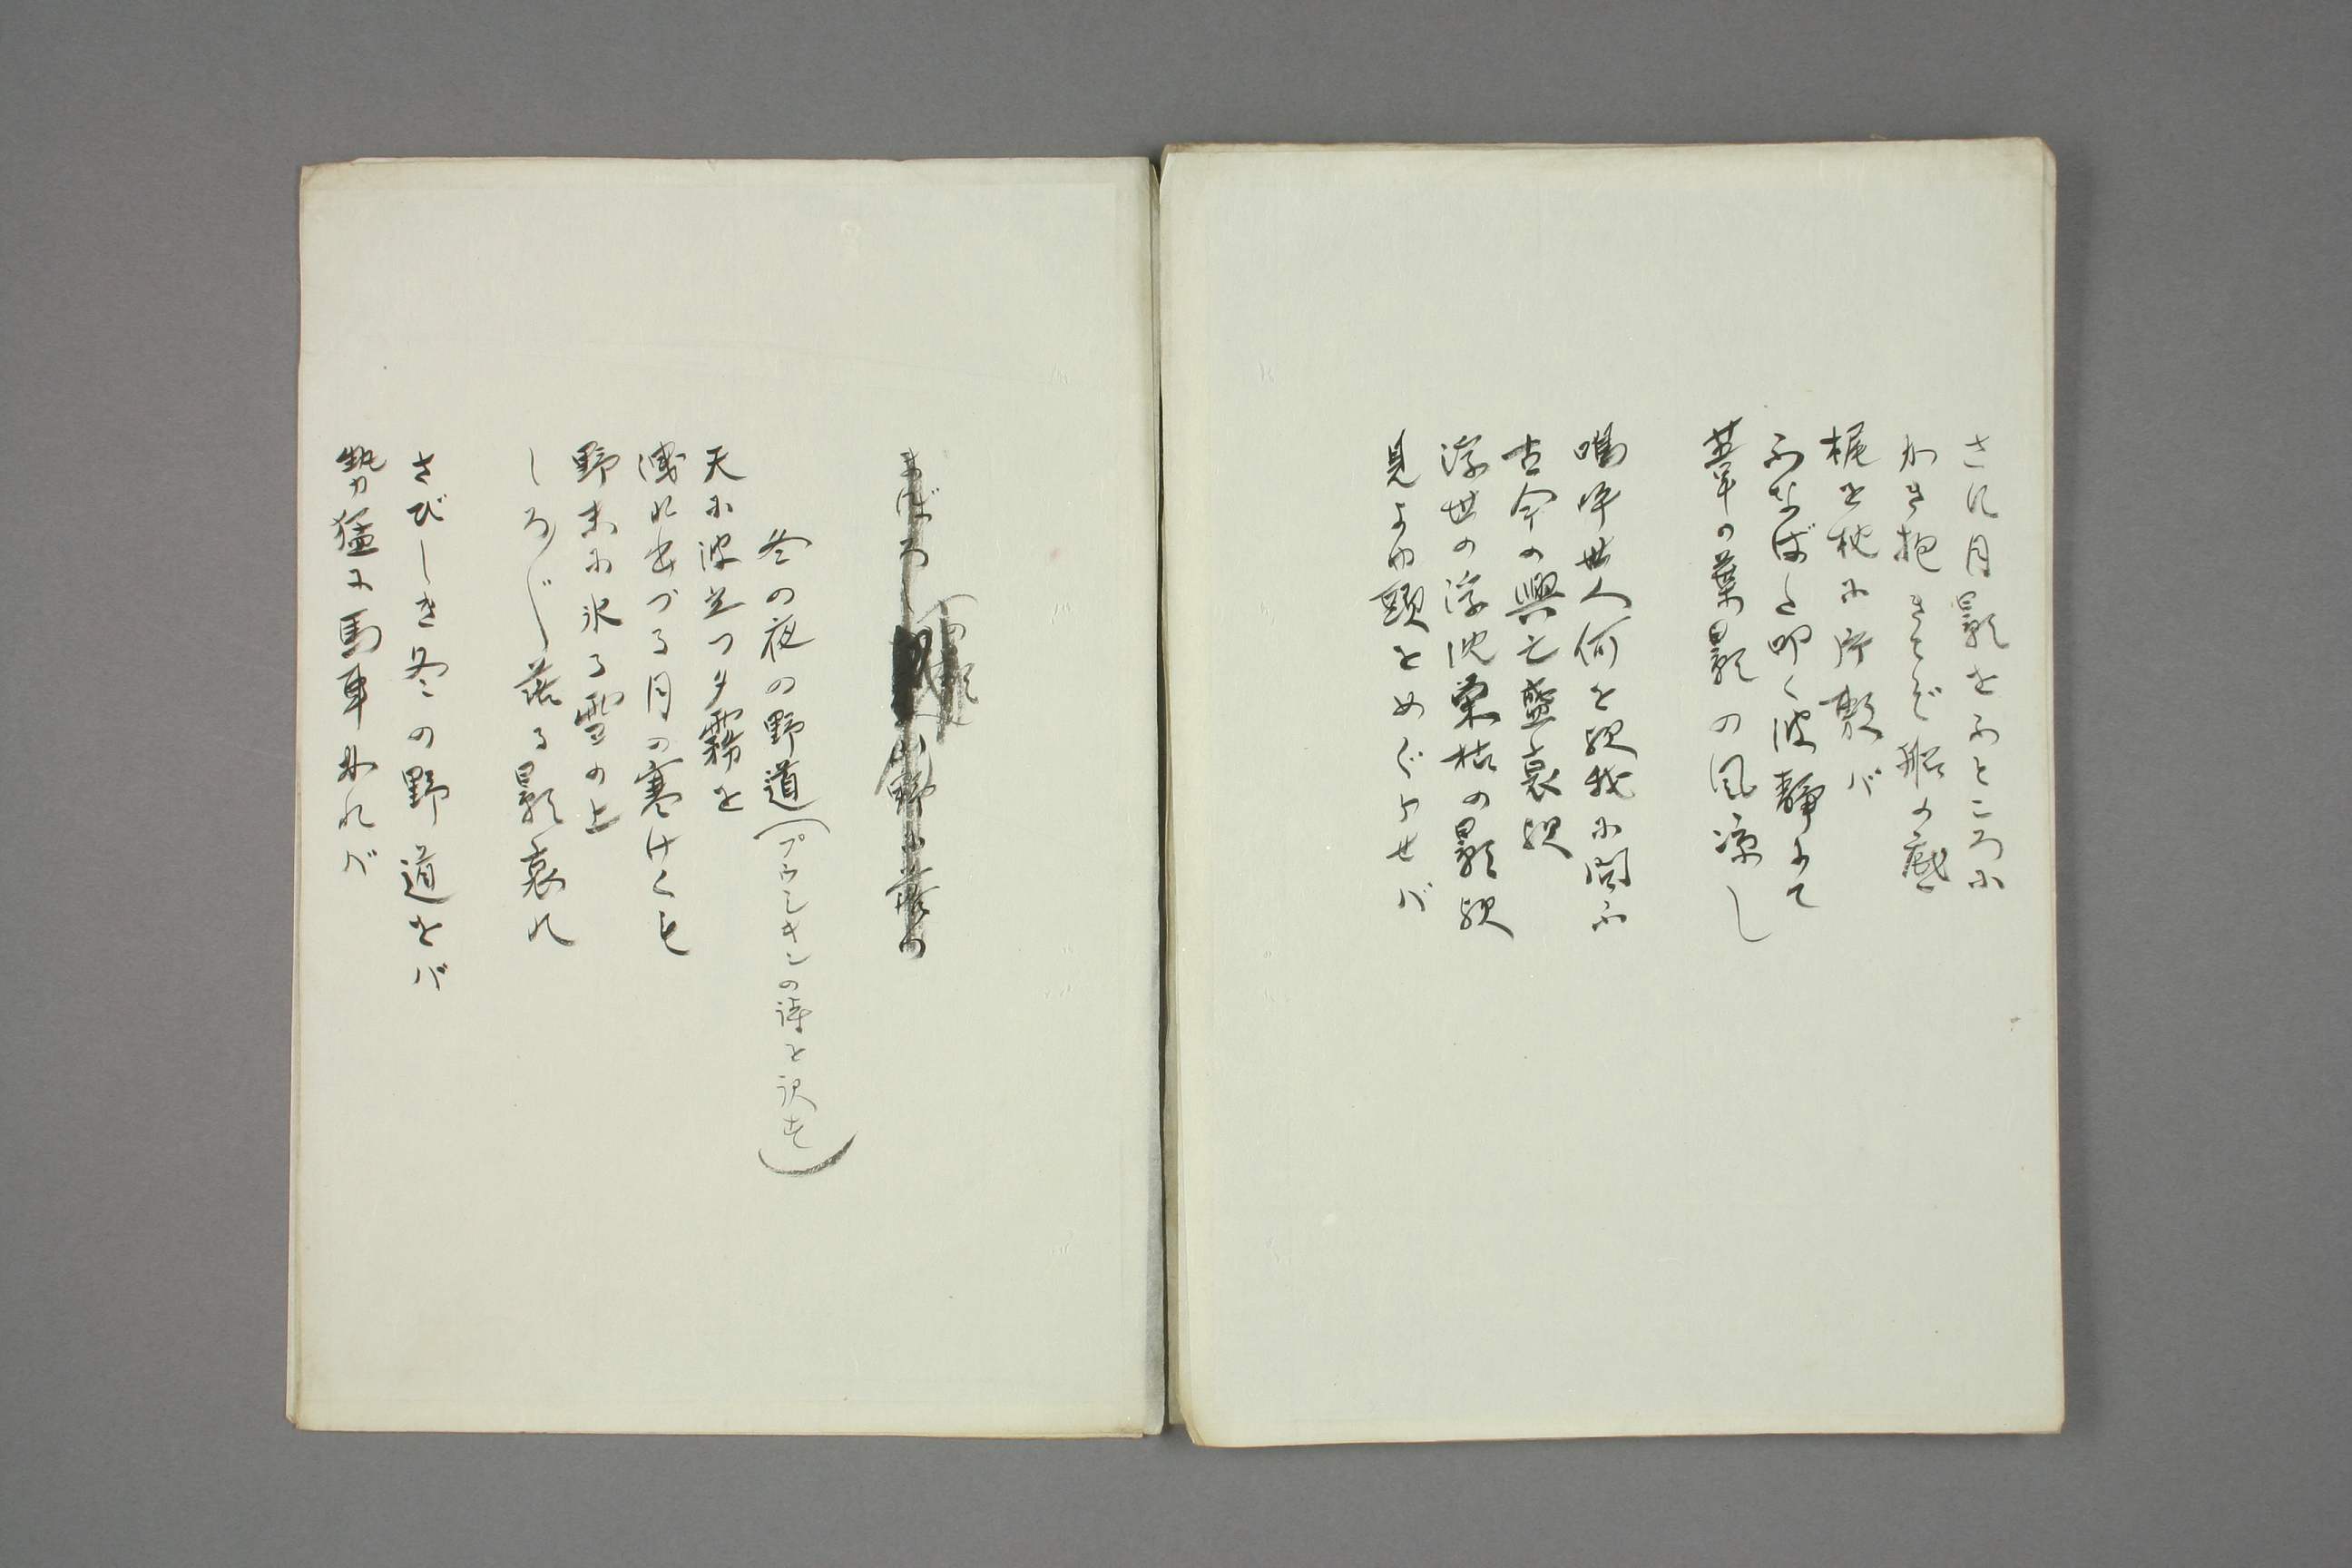 さし月影をふところに
かき抱きとぞ船の底
梶を枕に片敷バ
ふなばた叩く波静にて
葦の葉影の風涼し
嗚呼世人何を歟我に問ふ
古今の興亡盛衰歟
浮世の浮沈栄枯の影歟
見よや頭をめぐらせバ
まぼろし
冬の夜の野道（プウシキンの詩を訳す）
天に波立つ夕霧を
洩れ出づる月の寒けくも
野末に氷る雪の上
しろ〴〵落る影哀れ
さびしき冬の野道をバ
勢力猛に馬車かれバ